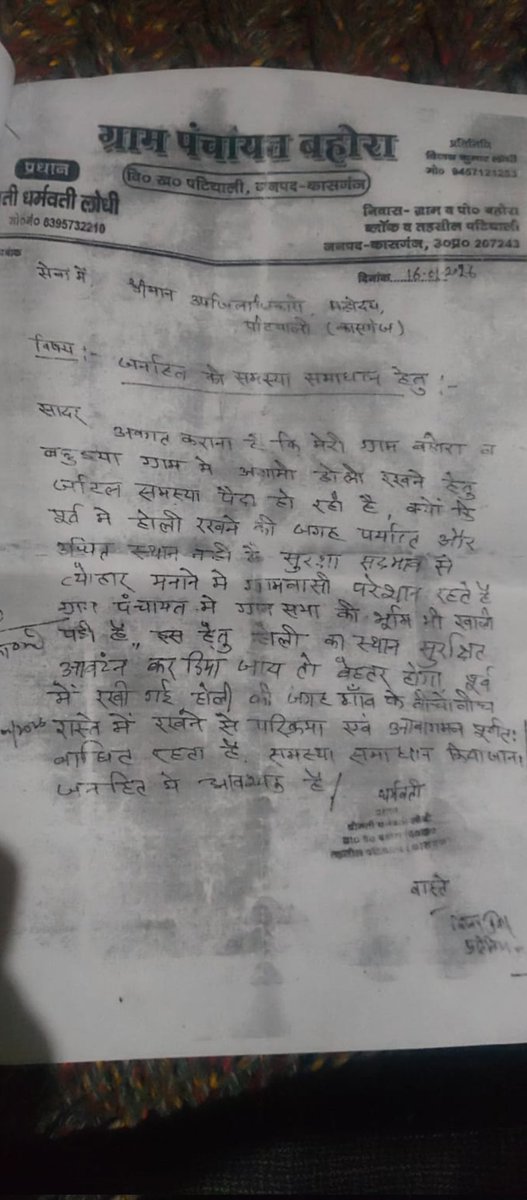 ग्राम पंचायत बहोरा
प्रधान
वि० ख० पटियाली, जनपद-कासगंज
प्रतिनिधि
विजय कुमार लोधी
मो० 9457121253
ती धर्मवती लोधी
मो०नं० 6395732210
निवास- ग्राम व पो० बहोरा
ब्लॉक व तहसील पटियाली
जनपद-कासगंज, उ०प्र० 207243
दिनांक 16-01-2026
सेवा में,
श्रीमान उपजिलाधिकारी, महोदय,
पटियाली (कासगंज)
विषय :- जनहित की समस्या समाधान हेतु :-
सादर
अवगत कराना है कि मेरी ग्राम बहोरा व
ग्राम में आगामी होली रखने हेतु
जटिल समस्या पैदा हो रही है, क्यों कि
पूर्व में होली रखने की जगह पर्याप्त और
उचित स्थान नहीं है सुरक्षा से
त्यौहार मनाने में ग्रामवासी परेशान रहते है
ग्राम पंचायत में ग्राम सभा की भूमि भी खाली
पड़ी है, इस हेतु होली का स्थान सुरक्षित
आवंटन कर दिया जाय तो बेहतर होगा पूर्व
में रखी गई होली की जगह गाँव के बीचोंबीच
रास्ते में रखने से परिक्रमा एवं आवागमन पूर्णत:
बाधित रहता है. समस्या समाधान किया जाना
जनहित में आवश्यक है
धर्मवती
वास्ते